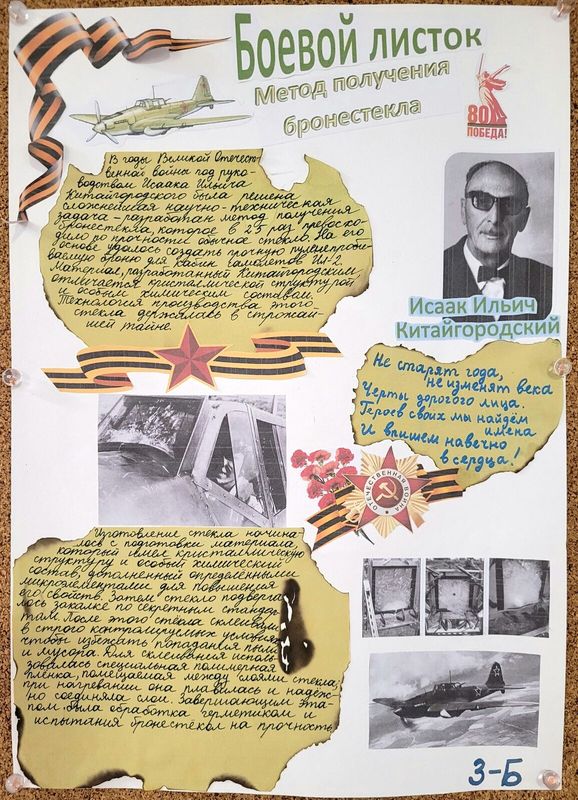 Боевой листок
Метод получения
бронестекла
80
ПОБЕДА!
В годы Великой Отечест-
венной войны под руко-
водством Исаака Ильича
Китайгородского была решена
сложнейшая научно-техническая
задача - разработан метод получения
бронестекла, которое в 25 раз превосхо-
дило по прочности обычное стекло. На его
основе удалось создать прочную пулепроби-
ваемую броню для кабин самолетов Ил-2
Материал, разработанный Китайгородским
отличается кристаллической структурой
и особым химическим составом.
Технология производства этого
стекла держалась в строжай-
шей тайне.
Исаак Ильич
Китайгородский
Не старят года,
не изменят века
Черты дорогого лица.
Героев своих мы найдём
имена
И впишем навечно
в сердца!
ОТЕЧЕСТВЕННАЯ ВОЙНА
Изготовление стекла начина
лось с подготовки материала,
который имел кристаллическую
структуру и особый химический
состав, дополненный определёнными
микроэлементами для повышения
его свойств. Затем стекло подверга
лось закалке по секретным стандар
там. После этого стекла склеивали
в строго контролируемых условиях
чтобы избежать попадания пыли
и мусора. Для склеивания исполь-
зовалась специальная полимерная
плёнка, помещаемая между слоями стекла,
при нагревании она плавилась и надёж-
но соединяла слои. Завершающим эта-
пом была обработка герметиком и
испытания бронестекол на прочность
3-Б